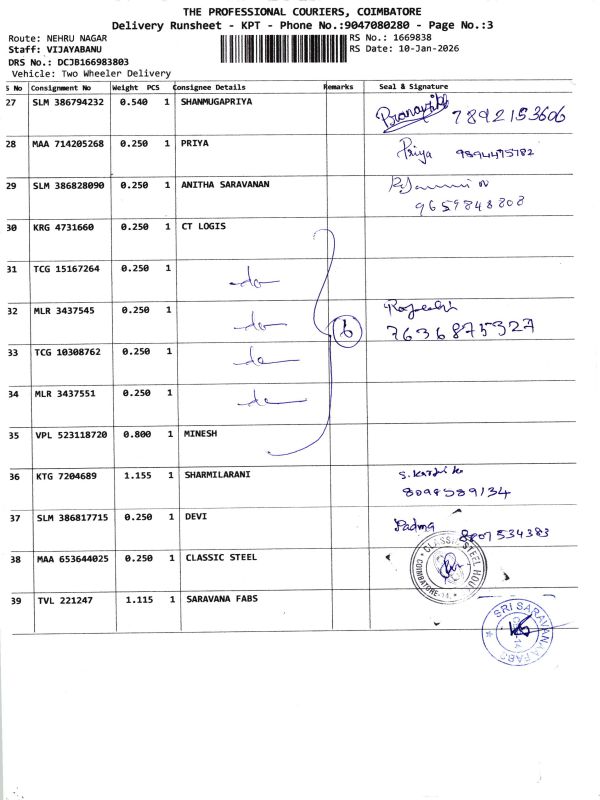 THE PROFESSIONAL COURIERS, COIMBATORE
Delivery Runsheet - KPT - Phone No.:9047080280 - Page No.:3
Route: NEHRU NAGAR RS No.: 1669838
Staff: VIJAYABANU RS Date: 10-Jan-2026
DRS No.: DCJB166983803
Vehicle: Two Wheeler Delivery
S No Consignment No Weight PCS Consignee Details Remarks Seal & Signature
27 SLM 386794232 0.540 1 SHANMUGAPRIYA 7892153606
28 MAA 714205268 0.250 1 PRIYA Priya 9894495782
29 SLM 386828090 0.250 1 ANITHA SARAVANAN
9659848808
30 KRG 4731660 0.250 1 CT LOGIS
31 TCG 15167264 0.250 1 do
32 MLR 3437545 0.250 1 do 6 7636875327
33 TCG 10308762 0.250 1 do
34 MLR 3437551 0.250 1 do
35 VPL 523118720 0.800 1 MINESH
36 KTG 7204689 1.155 1 SHARMILARANI
8098589134
37 SLM 386817715 0.250 1 DEVI Padma 8807534383
38 MAA 653644025 0.250 1 CLASSIC STEEL CLASSIC STEEL HOU COIMBATORE
39 TVL 221247 1.115 1 SARAVANA FABS SRI SARAVANA FABS